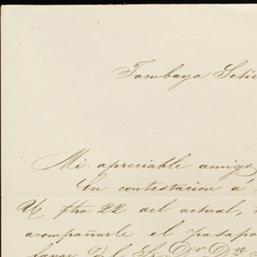 Tacubaya Setie
Mi apreciable amigo,
En contestacion á
Ud ftra 22 del actual,
acompañarle el pasapo
favor del Sr. Dr. Dn